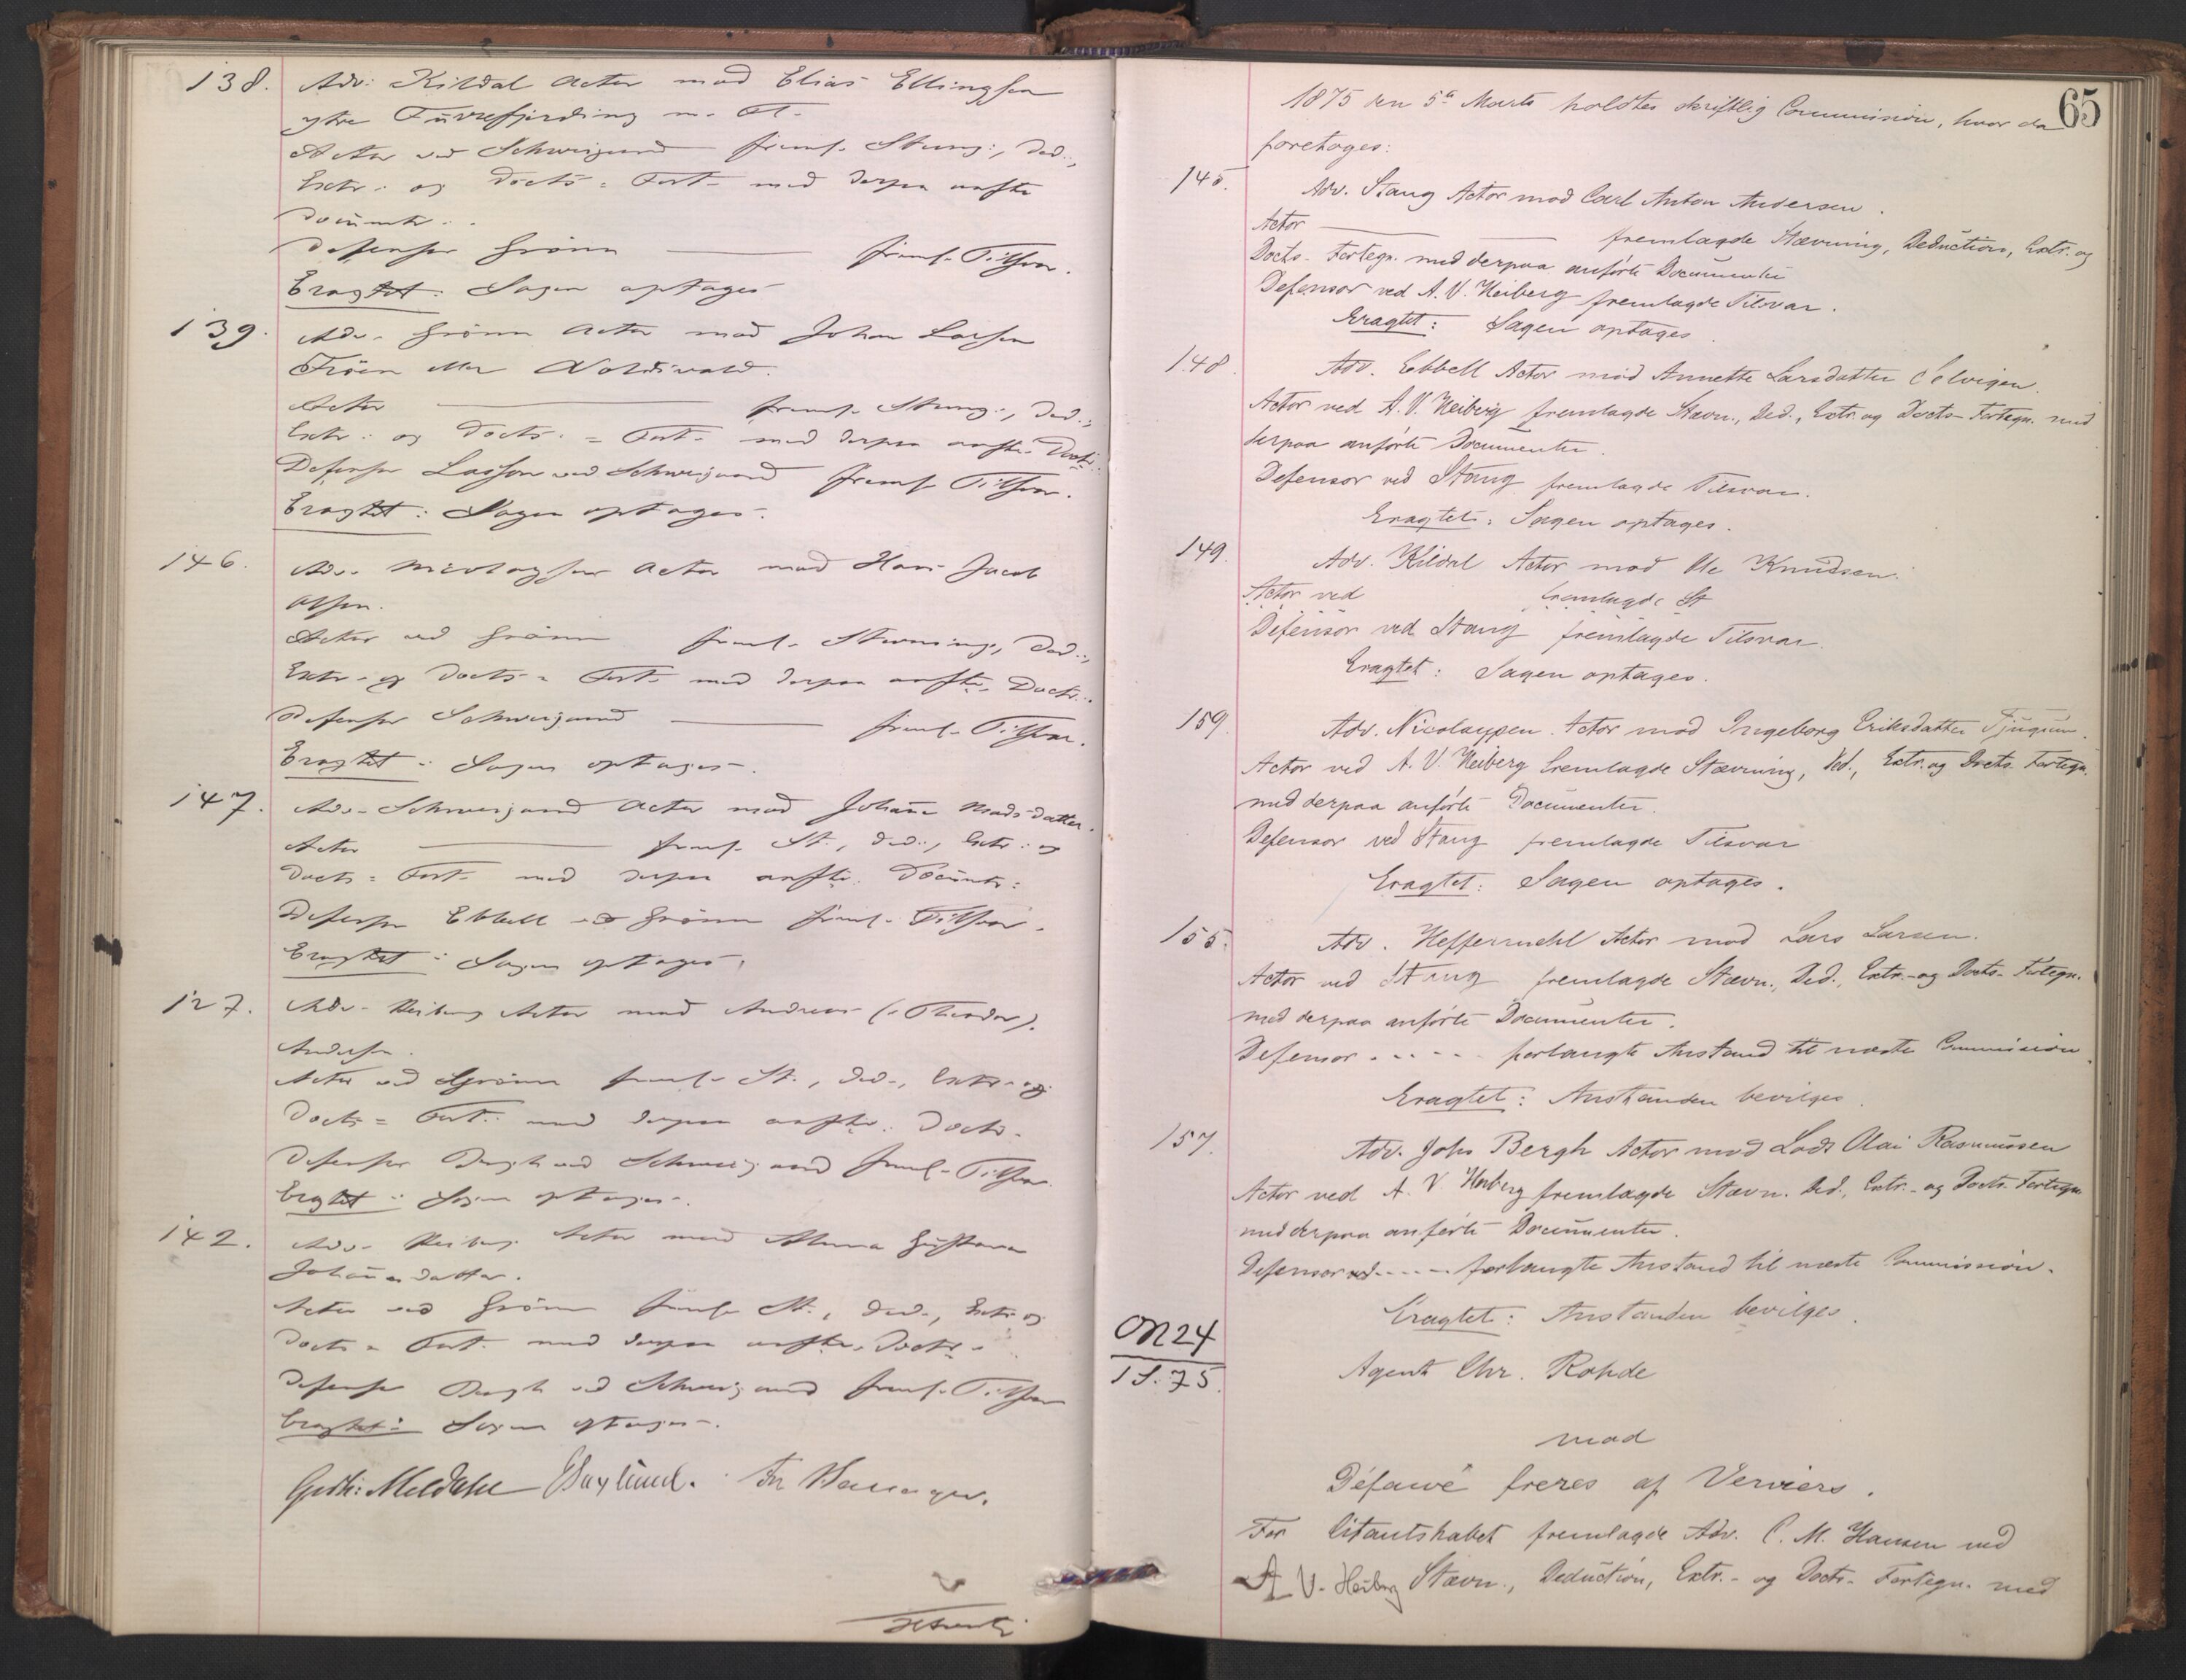 138. Adv: Kildal Actor mod Elias Ellingsen
ytre Furrefjerding m. Fl.
Actor ved Schweigaard freml. Stevng:, Ded:,
Extr: og Docts = Fort. med derpaa anfte
Documtr.
Defensor Grönn freml. Tilsvar.
Eragtet: Sagen optages
139. Adv. Grönn Actor mod Johan Larsen
Fröen eller
Actor freml. Stevng:, Ded:,
Extr: og Docts: = Fort. med derpaa anfte. Doctr.
Defensor Lasson ved Schweigaard freml. Tilsvar.
Eragtet: Sagen optages.
146. Adv. Nicolaysen Actor mod Hans Jacob
Olsen.
Actor ved Grönn freml. Stevning, Ded:,
Extr. og Docts = Fort. med derpaa anfte. Doctr.
Defensor Schweigaard freml. Tilsvar.
Eragtet: Sagen optages.
147. Adv. Schweigaard Actor mod Johanne Madsdatter.
Actor freml. St:, Ded:, Extr: og
Docts = Fort. med derpaa anfte. Documtr:
Defensor Ebbell ved Grönn freml. Tilsvar.
Eragtet: Sagen optages.
127. Adv. Heiberg Actor mod Andreas (Theodor)
Andersen.
Actor ved Grönn freml. St:, Ded., Extr. og
Docts = Fort: med derpaa anfte. Doctr.
Defensor Bergh ved Schweigaard freml. Tilsvar.
Eragtet: Sagen optages.
142. Adv. Heiberg Actor mod Gustava
Johannesdatter.
Actor ved Grönn freml. St:, Ded., Extr. og
Docts = Fort. med derpaa anfte. Doctr.
Defensor Bergh ved Schweigaard freml. Tilsvar
Eragtet: Sagen optages.
Meldahl
65
1875 den 5te Marts holdtes skriftlig Commission, hvor da
foretages:
145. Adv. Stang Actor mod Carl Anton Andersen.
Actor fremlagde Stævning, Deduction, Extr. og
Docts- Fortegn. med derpaa anførte Documenter
Defensor ved A. V. Heiberg fremlagde Tilsvar.
Eragtet: Sagen optages.
148. Adv. Ebbell Actor mod Annette Larsdatter Selvigen.
Actor ved A. V. Heiberg fremlagde Stævn., Ded., Extr. og Docts- Fortegn. med
derpaa anførte Documenter.
Defensor ved Stang fremlagde Tilsvar.
Eragtet: Sagen optages.
149. Adv. Kildal Actor mod Ole Knudsen.
Actor ved fremlagde St
Defensor ved Stang fremlagde Tilsvar.
Eragtet: Sagen optages.
159. Adv. Nicolaysen Actor mod Ingeborg Eriksdatter Tjugum.
Actor ved A. V. Heiberg fremlagde Stævning, Ded., Extr. og Docts. Fortegn.
med derpaa anførte Documenter.
Defensor ved Stang fremlagde Tilsvar
Eragtet: Sagen optages.
155. Adv. Heffermehl Actor mod Lars Larsen.
Actor ved Stang fremlagde Stævn., Ded., Extr.- og Docts- Fortegn.
med derpaa anførte Documenter.
Defensor ..... forlangte Anstand til næste Commission.
Eragtet: Anstanden bevilges.
157. Adv. Johs Bergh Actor mod Lods Olai Rasmussen
Actor ved A. V. Heiberg fremlagde Stævn. Ded., Extr.- og Docts. Fortegn
med derpaa anførte Documenter.
Defensor ved ..... forlangte Anstand til næste Commission.
Eragtet: Anstanden bevilges.
24
1 S. 75.
Agent Chr. Rohde
mod
Défawé freres af Verviers.
For Citantskabet fremlagde Adv. C. M. Hansen ved
A V. Heiberg Stævn., Deduction, Extr.- og Docts- Fortegn. med